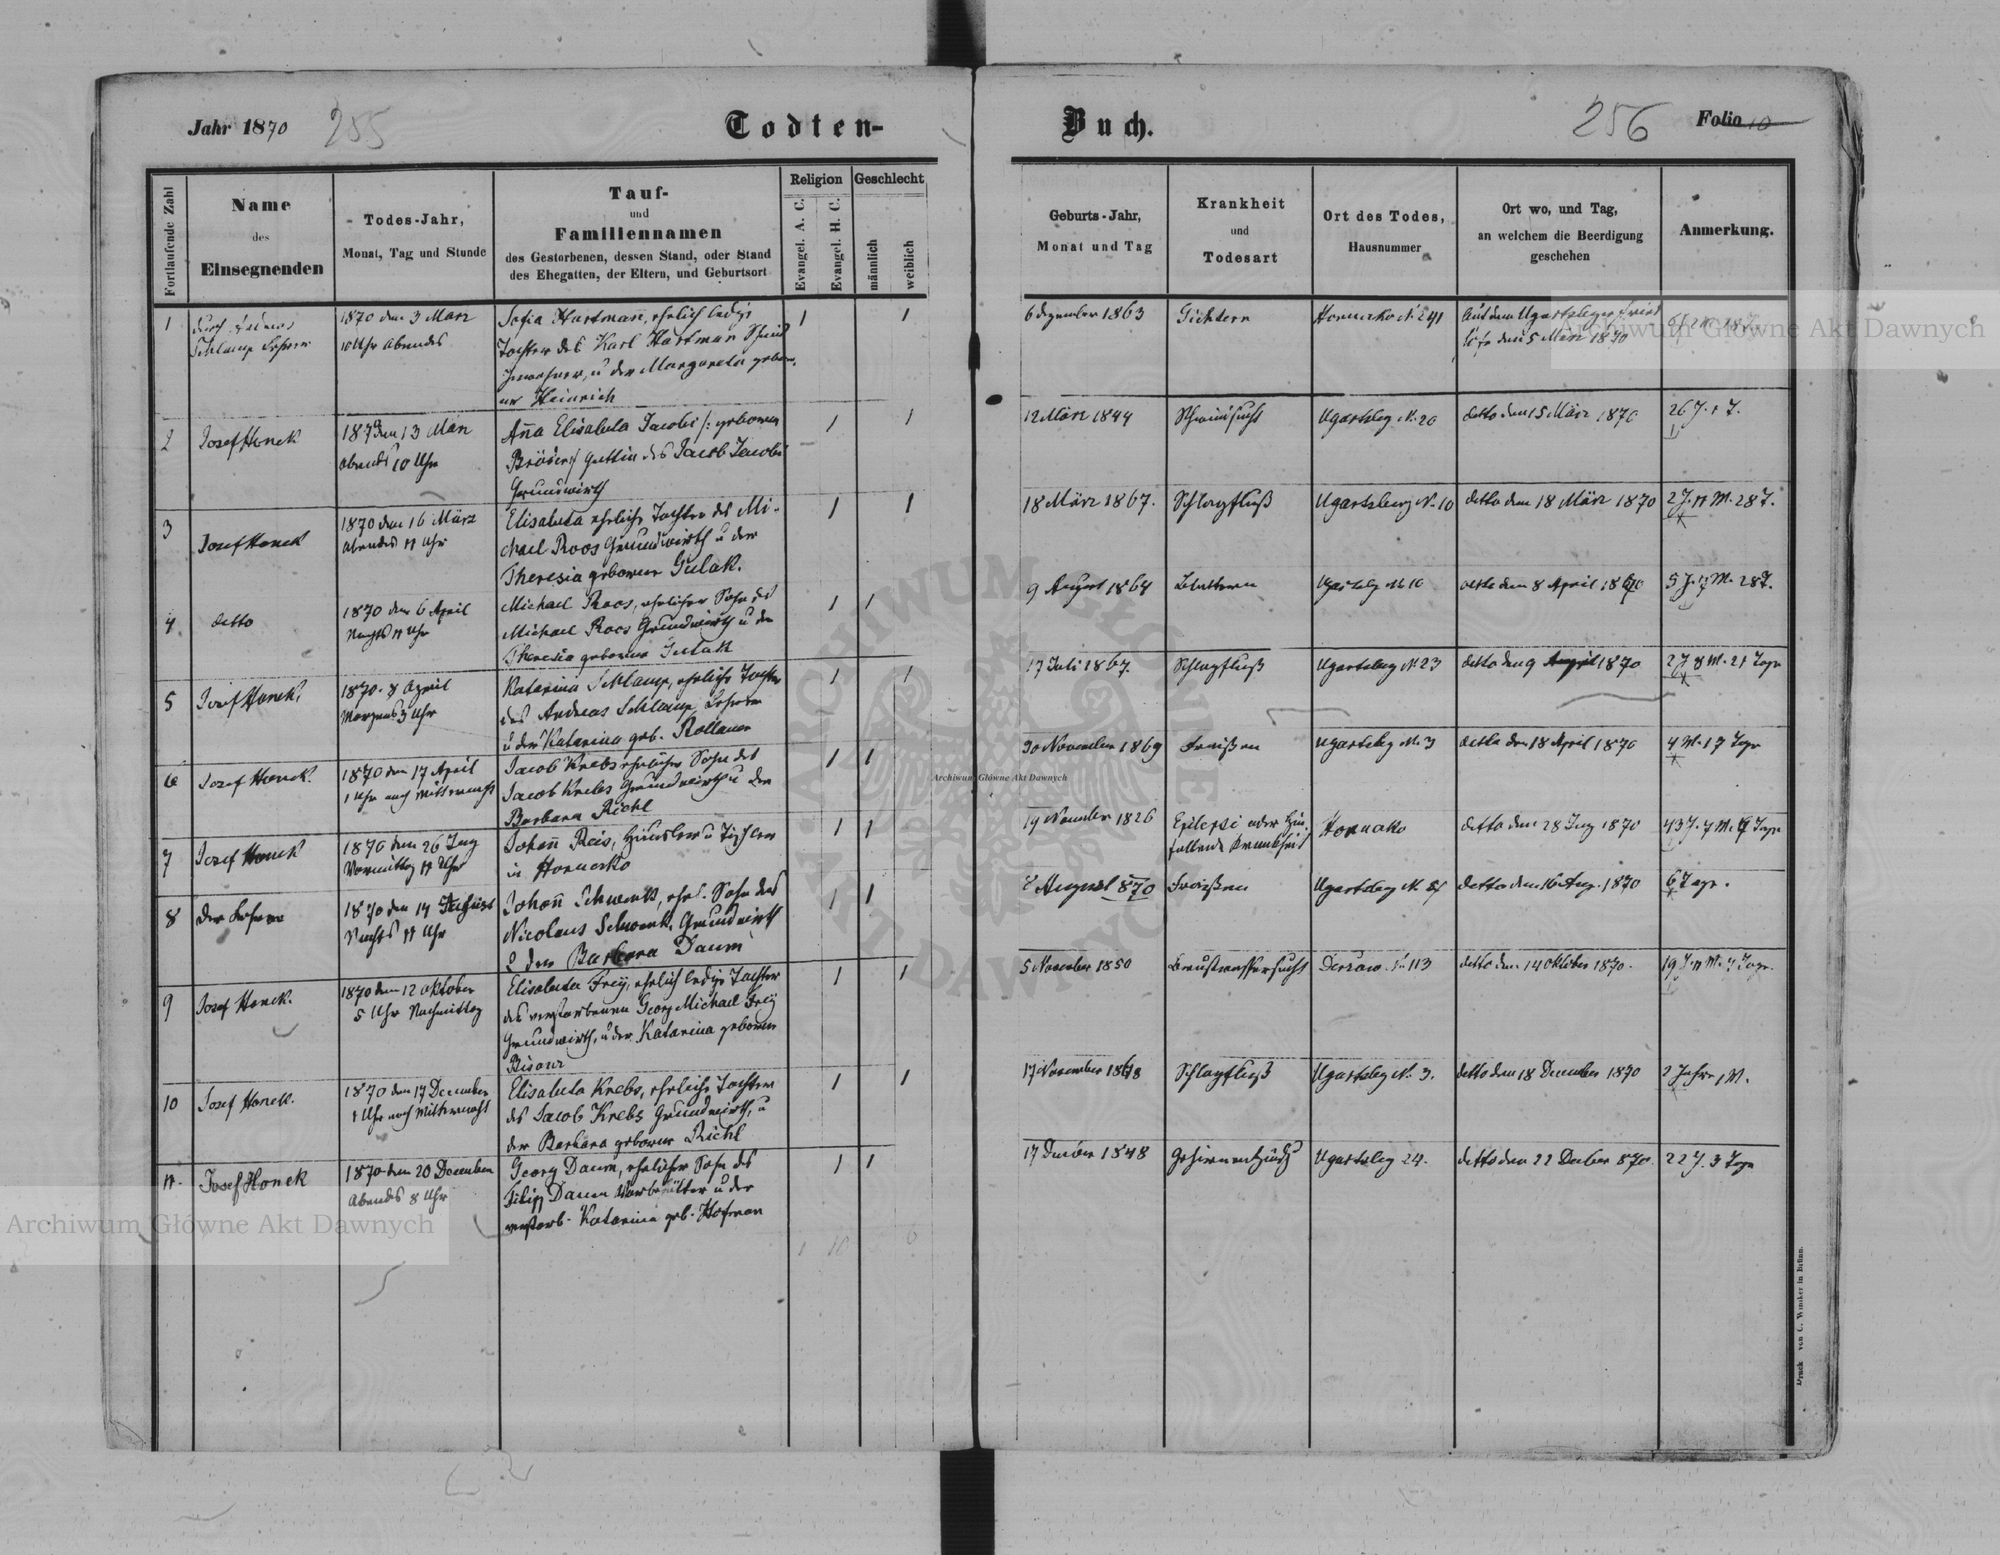 Jahr 1870
255
Todten-
Buch.
256
Folio 10
Fortlaufende Zahl
Name
des
Einsegnenden
Todes-Jahr,
Monat, Tag und Stunde
Tauf-
und
Familiennamen
des Gestorbenen, dessen Stand, oder Stand
des Ehegatten, der Eltern, und Geburtsort
Religion
Evangel. A. C.
Evangel. H. C.
Geschlecht
männlich
weiblich
Geburts-Jahr,
Monat und Tag
Krankheit
und
Todesart
Ort des Todes,
Hausnummer
Ort wo, und Tag,
an welchem die Beerdigung
geschehen
Anmerkung.
1
durch Andreas
Schlamp Lehrer
1870 den 3 März
10 Uhr Abends
Sofia Hartman, ehelich ledige
Tochter des Karl Hartman
Inwohner, u der Margareta gebor-
ne Heinrich
1
1
6 dezember 1863
Gichtern
Hornucko N 241
Auf dem Ugartsberger Fried
hofe den 5 März 1870
2
Josef Honek
1870 den 13 März
abends 10 Uhr
Anna Elisabeta Jacobi /: geborene
Gattin des Jacob Jacobi
Grundwirth
1
1
12 März 1844
Schwindsucht
Ugartsbeg N. 20
detto den 15 März 1870
26 J. 1 T.
3
Josef Honek
1870 den 16 März
abends 11 Uhr
Elisabeta eheliche Tochter des Mi-
chael Roos Grundwirth u der
Theresia geborne Gulak.
1
1
18 März 1867.
Schlagfluß
Ugartsberg N. 10
detto den 18 März 1870
2 J. 11 M. 28 T.
4
detto
1870 den 6 April
Nachts 11 Uhr
Michael Roos, ehelicher Sohn des
Michael Roos Grundwirth u der
Theresia geborne Gulak
1
1
9 August 1864
Blattern
Ugartsbg N 10
detto den 8 April 1870
5 J. 7 M. 28 T.
5
Josef Honek.
1870. 8 April
Morgens 3 Uhr
Katarina Schlamp, eheliche Tochter
des Andreas Schlamp Lehrer
u der Katarina geb. Rollauer
1
1
17 Juli 1867.
Schlagfluß
Ugartsbeg N 23
detto den 9 April 1870
2 J. 8 M. 21 Tage
6
Josef Honek.
1870 den 17 April
1 Uhr nach Mitternacht
Jacob Krebs ehelicher Sohn des
Jacob Krebs Grundwirth u der
Barbara Richl
1
1
30 November 1869
Fraißen
Ugartsbg N. 3
detto den 18 April 1870
4 M. 17 Tage
7
Josef Honek
1870 den 26
Vormittag 11 Uhr
Johann Reis, Häusler u Tischler
in Hornucko
1
1
19 November 1826
Epilepsi oder Hin-
fallende Krankheit
Hornucko
detto den 28 1870
8
Der Lehrer
1870 den 14 August
Nachts 11 Uhr
Johann Schwenk, ehel. Sohn des
Nicolaus Schwenk, Grundwirth
u der Barbara Daum
1
1
8 August 870
Fraißen
detto den 16 Aug. 1870
6 Tage.
9
Josef Honek.
1870 den 12 Oktober
5 Uhr Nachmittag
Elisabeta Frey, ehelich ledige Tochter
des verstorbenen Georg Michael Frey
Grundwirth, u der Katarina geborne
Bisanz
1
1
5 November 1850
Brustwassersucht
Derzow N. 113
detto den 14 Oktober 1870.
19 J. 11 M. 7 Tage.
10
Josef Honek.
1870 den 17 December
1 Uhr nach Mitternacht
Elisabeta Krebs, eheliche Tochter
des Jacob Krebs Grundwirth, u
der Barbara geborne Richl
1
1
17 November 1868
Schlagfluß
Ugartsbeg N. 3.
detto den 18 December 1870
2 Jahre 1 M.
11.
Josef Honek
1870 den 20 December
Abends 8 Uhr
Georg Daum, ehelicher Sohn des
Filipp Daum u der
verstorb. Katarina geb. Hofman
1
1
17 Dember 1848
Ugartsbeg 24.
detto den 22 Decber 870.
22 J. 3 Tage
1 10 6
Druck von C. Winiker in Brünn.
Archiwum Główne Akt Dawnych
Archiwum Główne Akt Dawnych
Archiwum Główne Akt Dawnych
ARCHIWUM GŁÓWNE AKT DAWNYCH